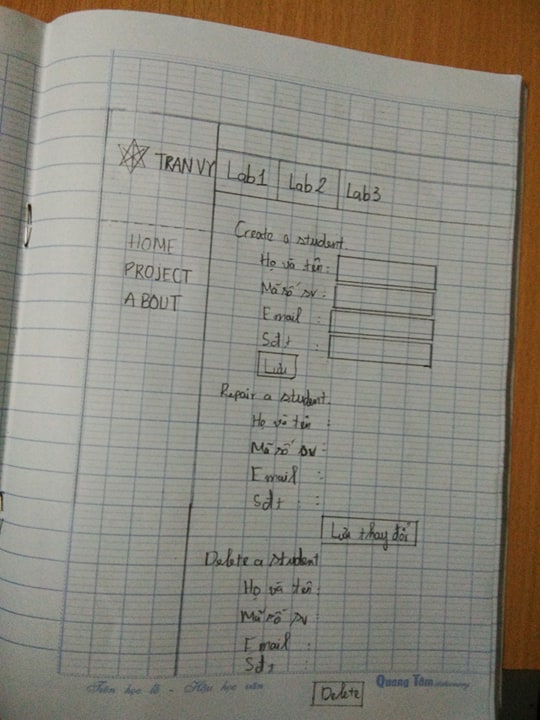 TRAN VY
Lab1 Lab2 Lab3
HOME
PROJECT
ABOUT
Create a student.
Họ và tên:
Mã số sv:
Email :
Sđt :
Lưu
Repair a student.
Họ và tên :
Mã số sv :
Email :
Sđt :
Lưu thay đổi
Delete a student
Họ và tên :
Mã số sv :
Email :
Sđt :
Delete
Tiên học lễ - Hậu học văn
Quang Tâm stationery